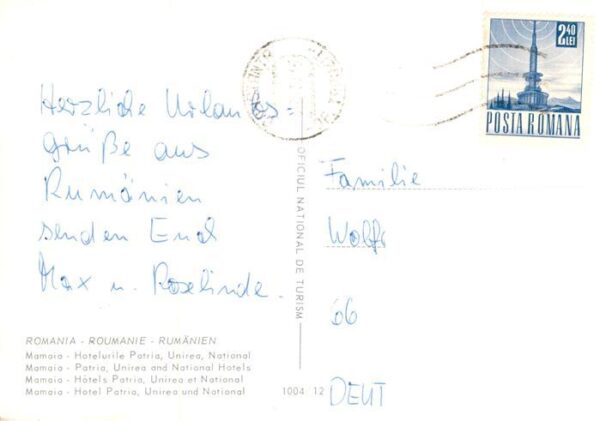 Herzliche Urlaubs=
grüße aus
Rumänien
senden Euch
Max u. Roselinde.
ROMANIA - ROUMANIE - RUMÄNIEN
Mamaia - Hotelurile Patria, Unirea, National
Mamaia - Patria, Unirea and National Hotels
Mamaia - Hôtels Patria, Unirea et National
Mamaia - Hotel Patria, Unirea und National
1004 12
OFICIUL NATIONAL DE TURISM
2,40
LEI
POSTA ROMANA
Familie
66